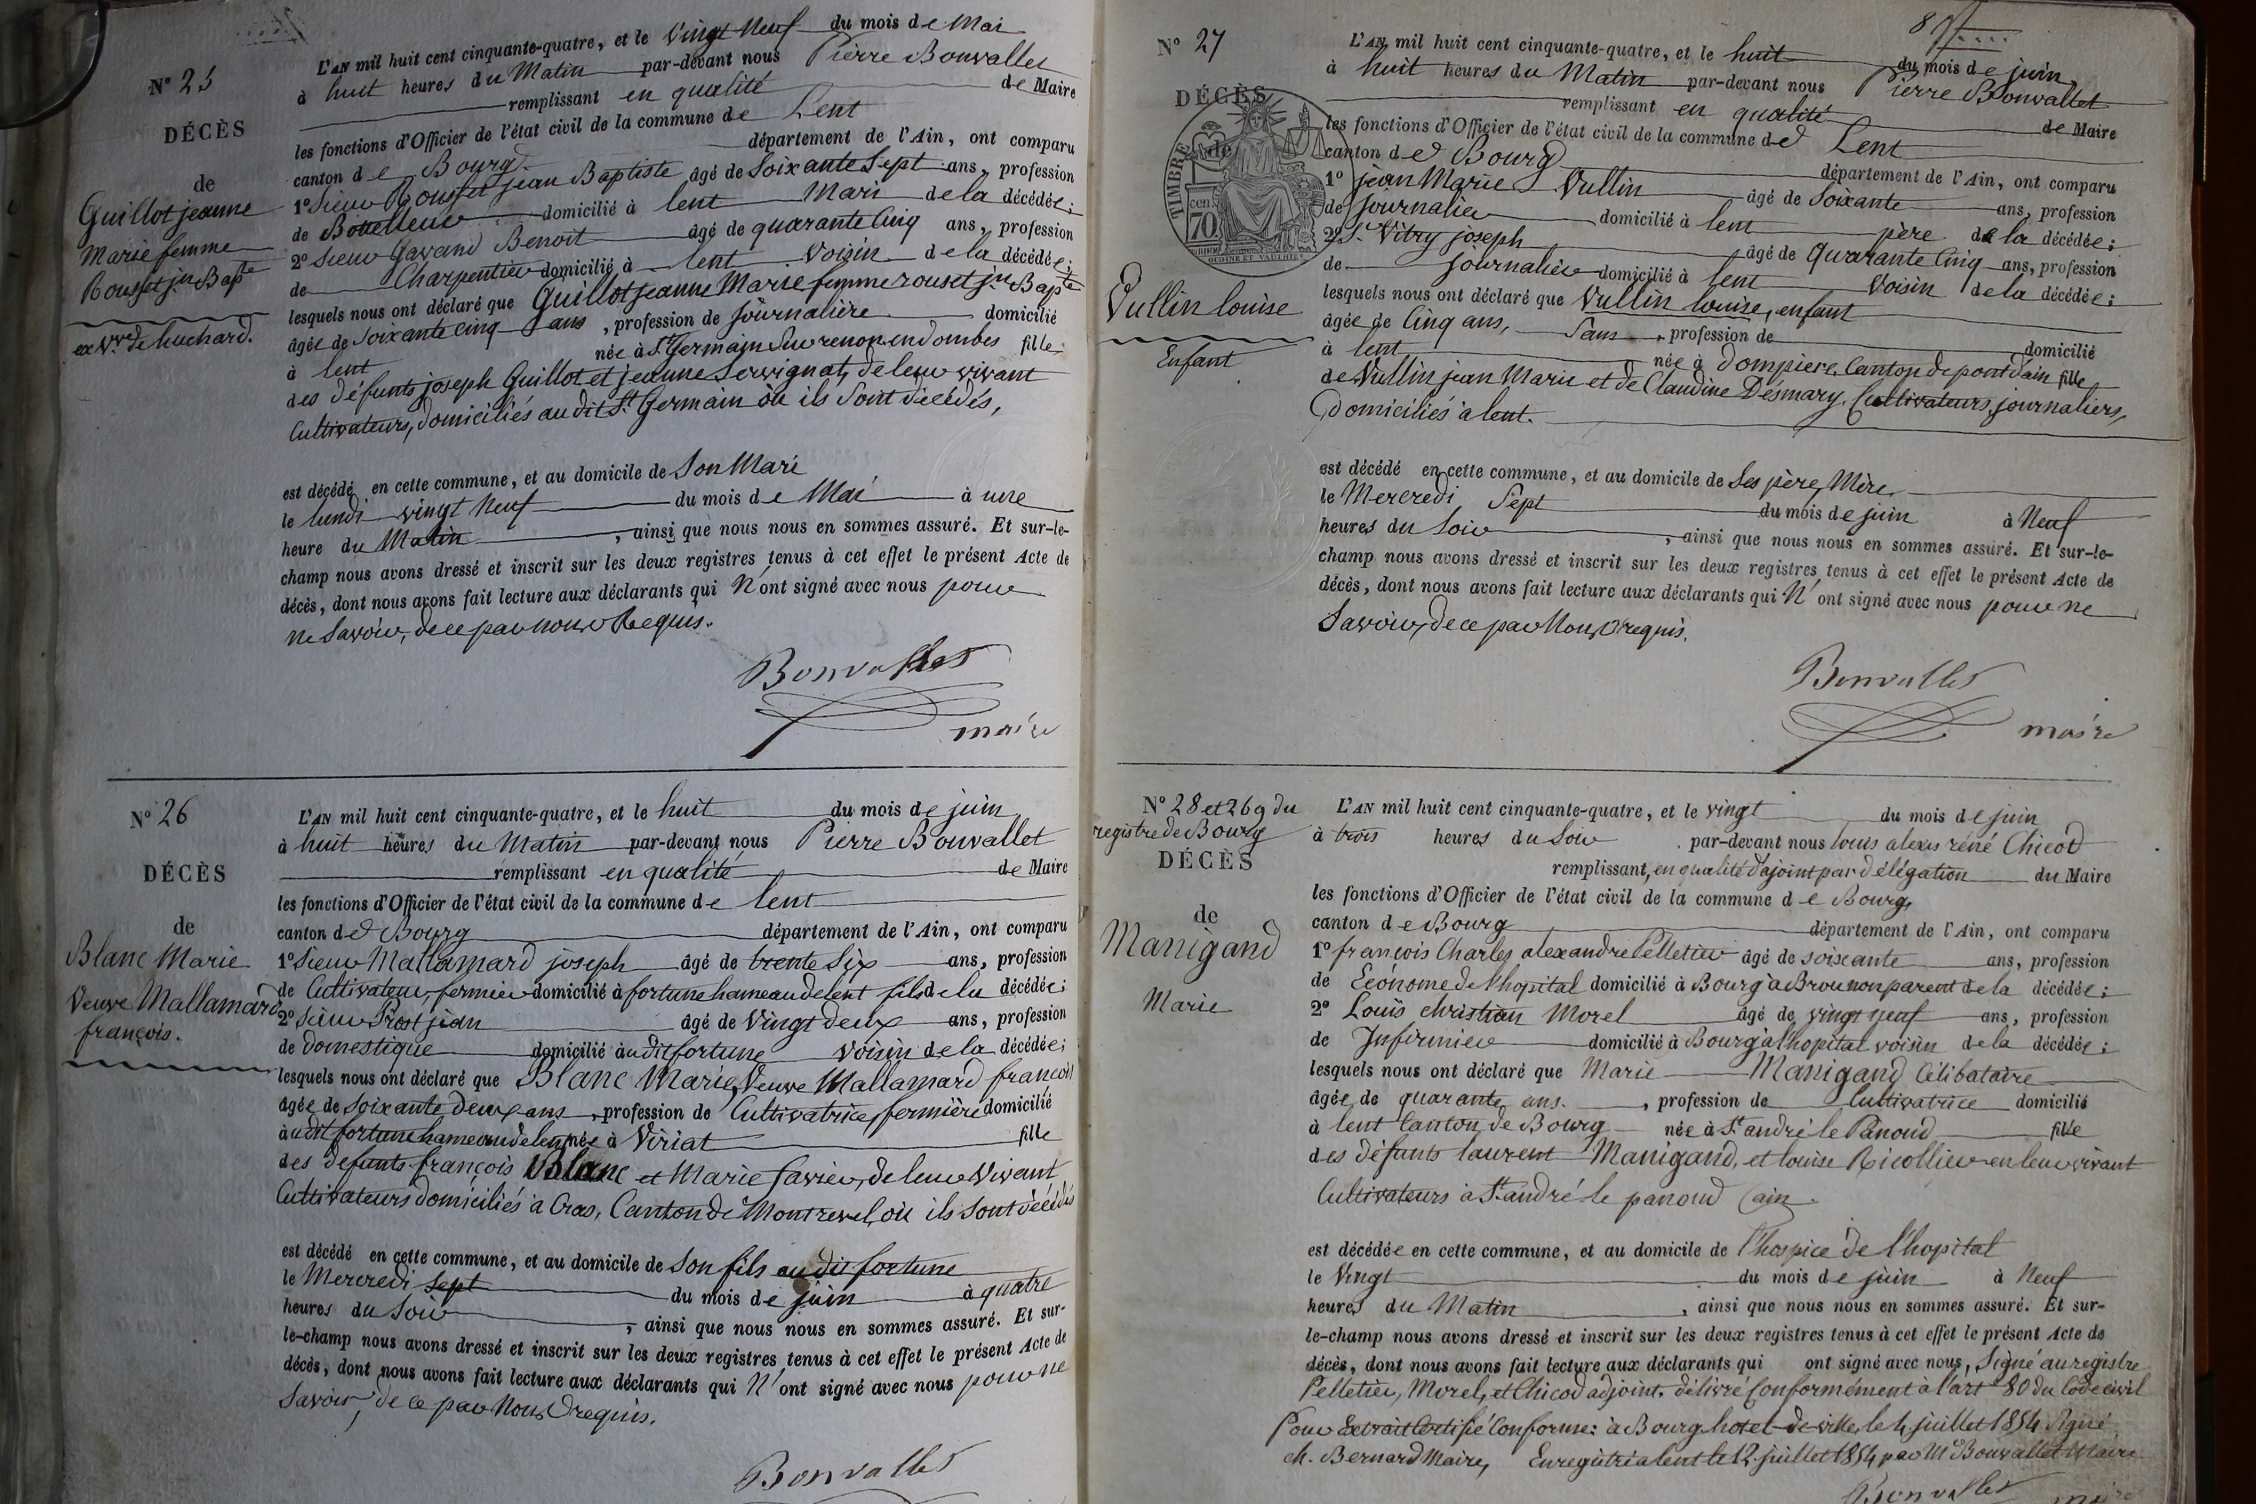 N° 25
DÉCÈS
de
Guillot jeanne
Marie femme
Rousset jn Bapte
ex Vve de huchard.
L'AN mil huit cent cinquante-quatre, et le Vingt Neuf du mois de Mai
à huit heures du Matin par-devant nous Pierre Bonvallet
remplissant en qualité de Maire
les fonctions d'Officier de l'état civil de la commune de Lent
canton de Bourg département de l'Ain, ont comparu
1° Sieur Rousset jean Baptiste âgé de Soixante Sept ans, profession
de domicilié à lent Mari de la décédée;
2° Sieur Gavand Benoit âgé de quarante Cinq ans, profession
de Charpentier domicilié à lent Voisin de la décédée;
lesquels nous ont déclaré que Guillot jeanne Marie femme rouset jn Bapte
âgée de Soixante cinq ans, profession de journalière domicilié
à lent née à St Germain Sur renon en dombes fille
des défunts joseph Guillot et jeanne Servignat, de leur vivant
Cultivateurs, domiciliés au dit St Germain où ils Sont décédés,
est décédé en cette commune, et au domicile de Son Mari
le lundi vingt Neuf du mois de Mai à une
heure du Matin, ainsi que nous nous en sommes assuré. Et sur-le-
champ nous avons dressé et inscrit sur les deux registres tenus à cet effet le présent Acte de
décès, dont nous avons fait lecture aux déclarants qui N'ont signé avec nous pour
ne Savoir, de ce par nous Requis.
Bonvallet
maire
N° 26
DÉCÈS
de
Blanc Marie
Veuve Mallamard
françois.
L'AN mil huit cent cinquante-quatre, et le huit du mois de juin
à huit heures du Matin par-devant nous Pierre Bonvallet
remplissant en qualité de Maire
les fonctions d'Officier de l'état civil de la commune de lent
canton de Bourg département de l'Ain, ont comparu
1° Sieur Mallamard joseph âgé de trente Six ans, profession
de Cultivateur, fermier domicilié à fortune hameau de lent fils de la décédée;
2° Sieur Prost jean âgé de Vingt deux ans, profession
de domestique domicilié audit fortune Voisin de la décédée;
lesquels nous ont déclaré que Blanc Marie, Veuve Mallamard françois
âgée de Soixante deux ans, profession de Cultivatrice, fermière domicilié
audit fortune hameau de lent née à Viriat fille
des défunts françois Blanc et Marie favier, de leur Vivant
Cultivateurs domiciliés à Cras, Canton de Montrevel, où ils Sont décédés
est décédé en cette commune, et au domicile de Son fils au dit fortune
le Mercredi Sept du mois de juin à quatre
heures du Soir, ainsi que nous nous en sommes assuré. Et sur-
le-champ nous avons dressé et inscrit sur les deux registres tenus à cet effet le présent Acte de
décès, dont nous avons fait lecture aux déclarants qui N'ont signé avec nous pour ne
Savoir, de ce par Nous requis.
Bonvallet
N° 27
DÉCÈS
de
TIMBRE
70 cen
Vullin louise
Enfant
L'AN mil huit cent cinquante-quatre, et le huit du mois de juin
à huit heures du Matin par-devant nous Pierre Bonvallet
remplissant en qualité de Maire
les fonctions d'Officier de l'état civil de la commune de Lent
canton de Bourg département de l'Ain, ont comparu
1° jean Marie Vullin âgé de Soixante ans, profession
de journalier domicilié à lent père de la décédée;
2° Sr Vitry joseph âgé de Quarante Cinq ans, profession
de journalier domicilié à lent Voisin de la décédée;
lesquels nous ont déclaré que Vullin louise, enfant
âgée de Cinq ans, Sans profession de domicilié
à lent née à dompiere, Canton de pont d'ain fille
de Vullin jean Marie et de Claudine Désmary, Cultivateurs, journaliers,
domiciliés à lent.
est décédé en cette commune, et au domicile de Ses père, Mère
le Mercredi Sept du mois de juin à Neuf
heures du Soir, ainsi que nous nous en sommes assuré. Et sur-le-
champ nous avons dressé et inscrit sur les deux registres tenus à cet effet le présent Acte de
décès, dont nous avons fait lecture aux déclarants qui N'ont signé avec nous pour ne
Savoir, de ce par Nous requis.
Bonvallet
maire
N° 28 et 269 du
registre de Bourg
DÉCÈS
de
Manigand
Marie
L'AN mil huit cent cinquante-quatre, et le vingt du mois de juin
à trois heures du Soir par-devant nous louis alexis réné Chicod
remplissant, en qualité d'ajoint par délégation du Maire
les fonctions d'Officier de l'état civil de la commune de Bourg,
canton de Bourg département de l'Ain, ont comparu
1° françois Charles alexandre Pelletier âgé de soixante ans, profession
de Économe de l'hopital domicilié à Bourg à Brou non parent de la décédée;
2° Louis christian Morel âgé de vingt neuf ans, profession
de Infirmier domicilié à Bourg à l'hopital voisin de la décédée;
lesquels nous ont déclaré que Marie Manigand Célibataire
âgée de quarante ans, profession de Cultivatrice domicilié
à lent Canton de Bourg née à St andré le Panoud fille
des défunts laurent Manigand, et louise Ricollier en leur vivant
Cultivateurs à St andré le panoud (ain.
est décédée en cette commune, et au domicile de l'hospice de l'hopital
le Vingt du mois de juin à Neuf
heures du Matin, ainsi que nous nous en sommes assuré. Et sur-
le-champ nous avons dressé et inscrit sur les deux registres tenus à cet effet le présent Acte de
décès, dont nous avons fait lecture aux déclarants qui ont signé avec nous, Signé au registre
Pelletier, Morel, et Chicod adjoint, délivré Conformément à l'art 80 du Code civil
Pour Extrait Certifié Conforme: à Bourg hotel de ville, le 4 juillet 1854 Signé
ch. Bernard Maire, Enregistré à lent le 12 juillet 1854 par Mr Bonvallet Maire
Bonvallet